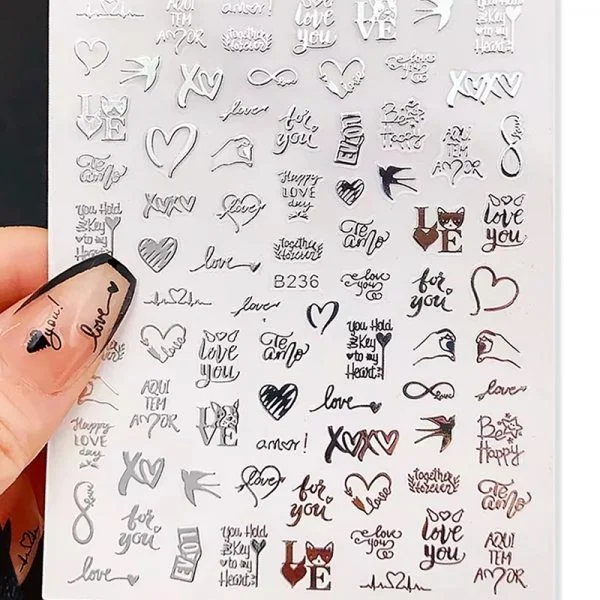 AQUI
TEM
AMOR
amor!
love
you
LOVE
You Hold
the Key
to my
Heart
together
forever
love
you
XOXO
XOXO
LOVE
love
for
you
LOVE
Be
Happy
AQUI
TEM
AMOR
love
Te
amo
Happy
LOVE
day
You Hold
the Key
to my
Heart
XOXO
love
LOVE
love
you
Te
amo
together
forever
love
B236
love
you
for
you
you!
love
love
love
love
you
Te
amo
You Hold
the Key
to my
Heart
AQUI
TEM
AMOR
love
love
love
Happy
LOVE
day
LOVE
amor!
XOXO
Be
Happy
XOXO
love
for
you
love
together
forever
Te
amo
love
for
you
love
LOVE
You Hold
the Key
to my
Heart
LOVE
love
you
love
you
AQUI
TEM
AMOR